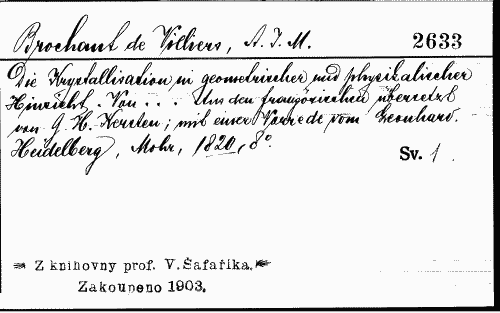 Brochant de Villiers, A. J. M. 2633
Die Krystallisation in geometrischer und physikalischer
Hinsicht. Von . . . Aus den französischen übersetzt
von J. H. Kersten; mit einer Vorrede vom Leonhard.
Heidelberg, Mohr, 1820, 8°.
Sv. 1.
Z knihovny prof. V. Šafaříka.
Zakoupeno 1903.